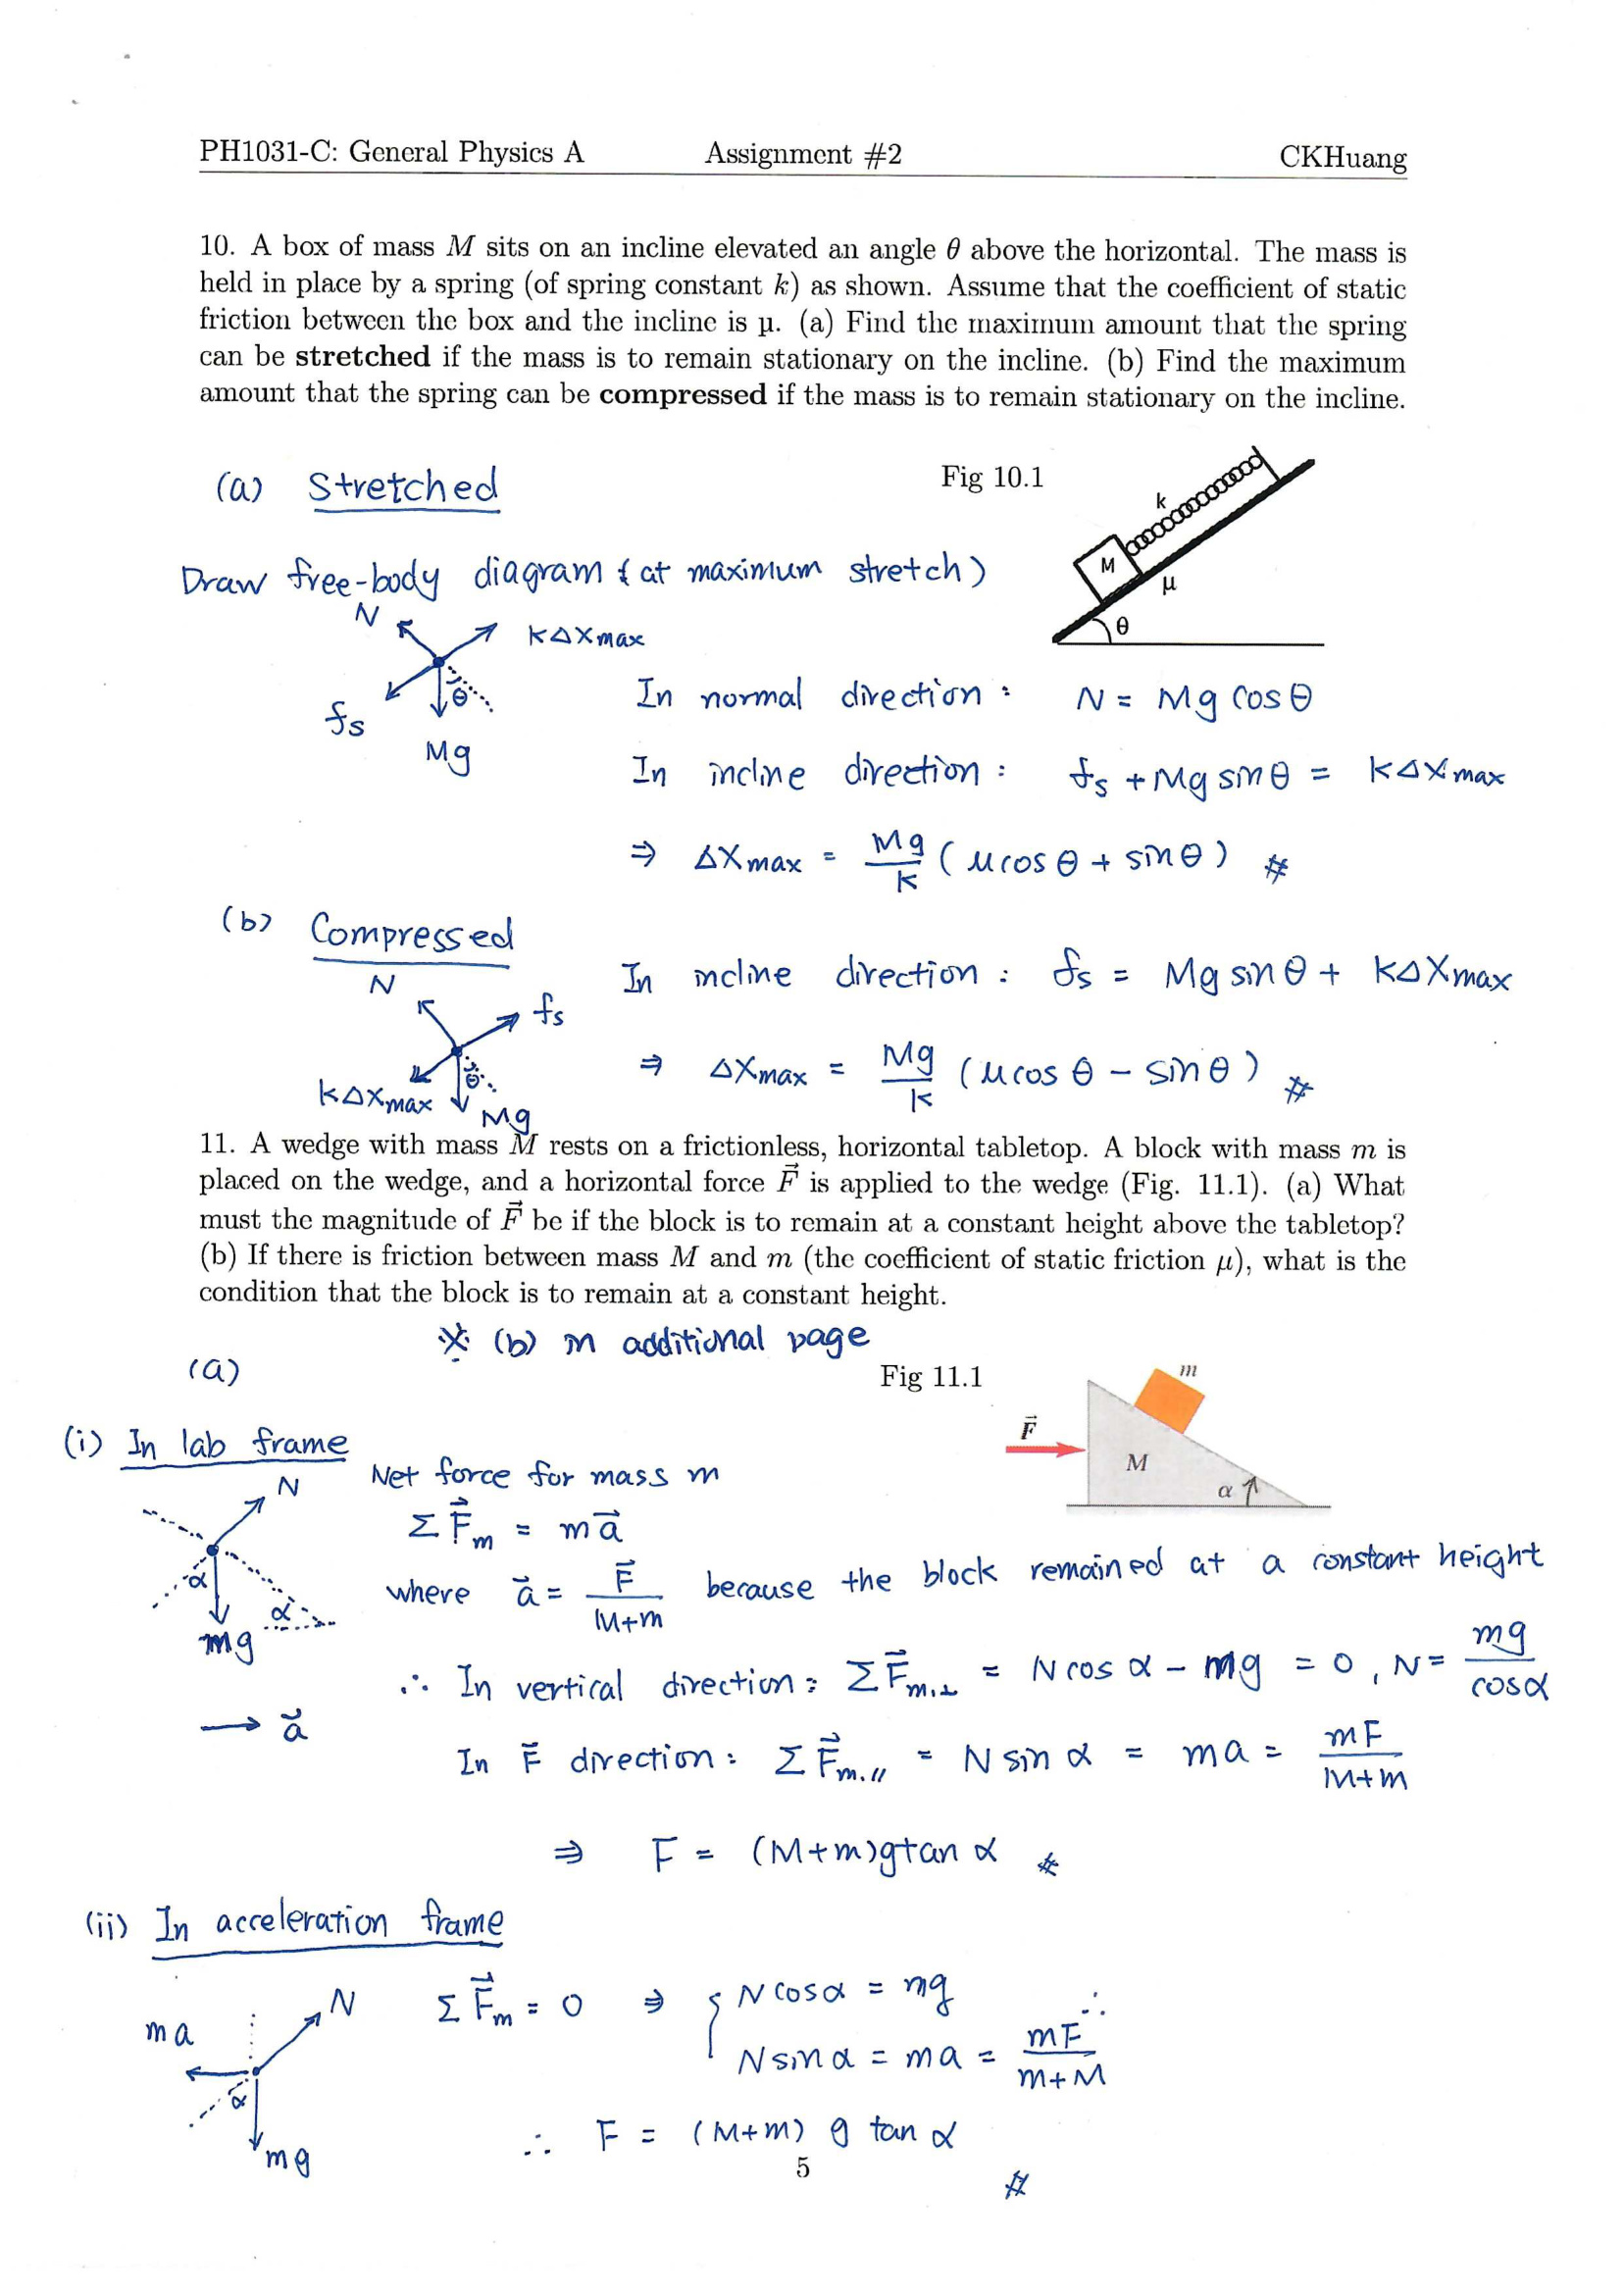 PH1031-C: General Physics A Assignment #2 CKHuang
10. A box of mass M sits on an incline elevated an angle θ above the horizontal. The mass is
held in place by a spring (of spring constant k) as shown. Assume that the coefficient of static
friction between the box and the incline is µ. (a) Find the maximum amount that the spring
can be stretched if the mass is to remain stationary on the incline. (b) Find the maximum
amount that the spring can be compressed if the mass is to remain stationary on the incline.
(a) Stretched
Fig 10.1
k
M
μ
θ
Draw free-body diagram (at maximum stretch)
N
kΔXmax
θ
fs
Mg
In normal direction : N = Mg cosθ
In incline direction : fs + Mg sinθ = kΔXmax
⇒ ΔXmax = Mg/k (μcosθ + sinθ) #
(b) Compressed
N
fs
θ
kΔXmax
Mg
In incline direction : fs = Mg sinθ + kΔXmax
⇒ ΔXmax = Mg/k (μcosθ − sinθ) #
11. A wedge with mass M rests on a frictionless, horizontal tabletop. A block with mass m is
placed on the wedge, and a horizontal force F⃗ is applied to the wedge (Fig. 11.1). (a) What
must the magnitude of F⃗ be if the block is to remain at a constant height above the tabletop?
(b) If there is friction between mass M and m (the coefficient of static friction μ), what is the
condition that the block is to remain at a constant height.
※ (b) in additional page
(a)
Fig 11.1
m
F⃗
M
α
(i) In lab frame
N
α
α
mg
→ a⃗
Net force for mass m
ΣF⃗m = ma⃗
where a⃗ = F⃗/(M+m) because the block remained at a constant height
∴ In vertical direction : ΣF⃗m,⊥ = N cos α − mg = 0 , N = mg/cosα
In F⃗ direction : ΣF⃗m,// = N sin α = ma = mF/(M+m)
⇒ F = (M+m)gtan α #
(ii) In acceleration frame
ma
N
α
mg
ΣF⃗m = 0 ⇒ { N cosα = mg
N sin α = ma = mF/(m+M) ∴
∴ F = (M+m) g tan α
#
5